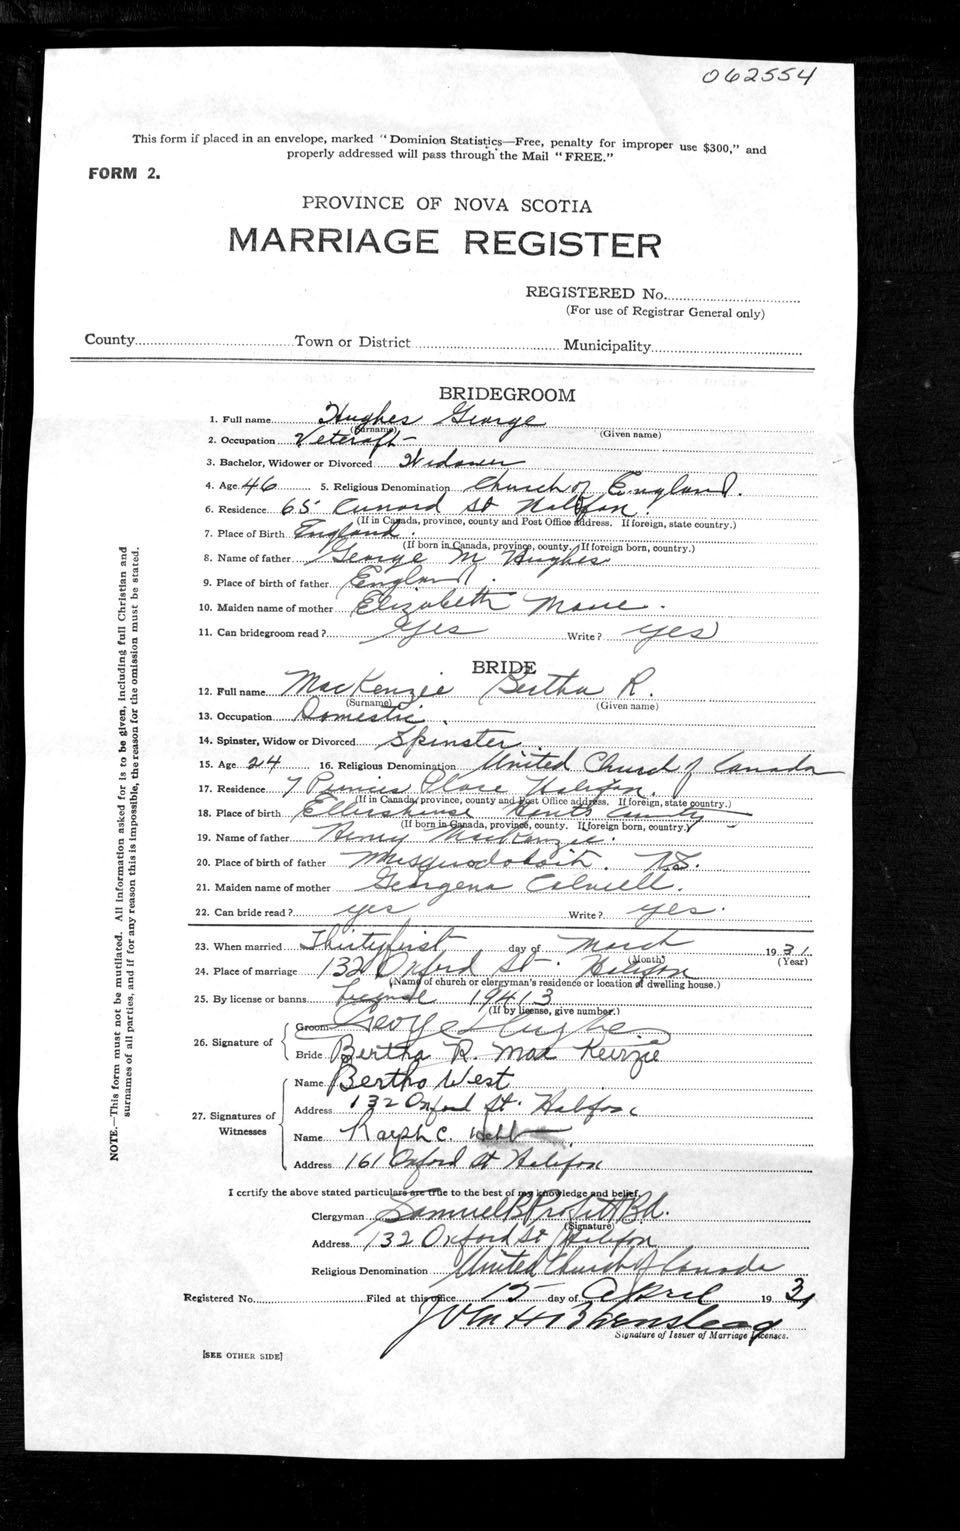 062554
This form if placed in an envelope, marked "Dominion Statistics—Free, penalty for improper use $300," and
properly addressed will pass through the Mail "FREE."
FORM 2.
PROVINCE OF NOVA SCOTIA
MARRIAGE REGISTER
REGISTERED No.
(For use of Registrar General only)
County Town or District Municipality
BRIDEGROOM
1. Full name Hughes George
(Surname) (Given name)
2. Occupation Vetcraft
3. Bachelor, Widower or Divorced Widower
4. Age 46 5. Religious Denomination Church of England.
6. Residence 65 Cunard St Halifax
(If in Canada, province, county and Post Office address. If foreign, state country.)
7. Place of Birth England.
(If born in Canada, province, county. If foreign born, country.)
8. Name of father George M Hughes
9. Place of birth of father England.
10. Maiden name of mother Elizabeth
11. Can bridegroom read? Yes Write? yes
BRIDE
12. Full name MacKenzie Bertha R.
(Surname) (Given name)
13. Occupation Domestic.
14. Spinster, Widow or Divorced Spinster
15. Age 24 16. Religious Denomination United Church of Canada
17. Residence 7 Place Halifax.
(If in Canada, province, county and Post Office address. If foreign, state country.)
18. Place of birth Ellershouse Hants County
(If born in Canada, province, county. If foreign born, country.)
19. Name of father Henry MacKenzie.
20. Place of birth of father Musquodoboit. N.S.
21. Maiden name of mother Georgena Colwell.
22. Can bride read? yes Write? yes.
23. When married Thirtyfirst day of March 1931
(Month) (Year)
24. Place of marriage 132 Oxford St. Halifax
(Name of church or clergyman's residence or location of dwelling house.)
25. By license or banns License 19413
(If by license, give number.)
26. Signature of
Groom George Hughes
Bride Bertha R. MacKenzie
27. Signatures of Witnesses
Name Bertha West
Address 132 Oxford St. Halifax
Name Ralph C. Webb
Address 161 Oxford St Halifax
I certify the above stated particulars are true to the best of my knowledge and belief.
Clergyman Samuel B Profitt B.d.
(Signature)
Address 132 Oxford St Halifax
Religious Denomination United Church of Canada
Registered No. Filed at this office 15 day of April 1931
John H
Signature of Issuer of Marriage Licenses.
[SEE OTHER SIDE]
NOTE.—This form must not be mutilated. All information asked for is to be given, including full Christian and
surnames of all parties, and if for any reason this is impossible, the reason for the omission must be stated.